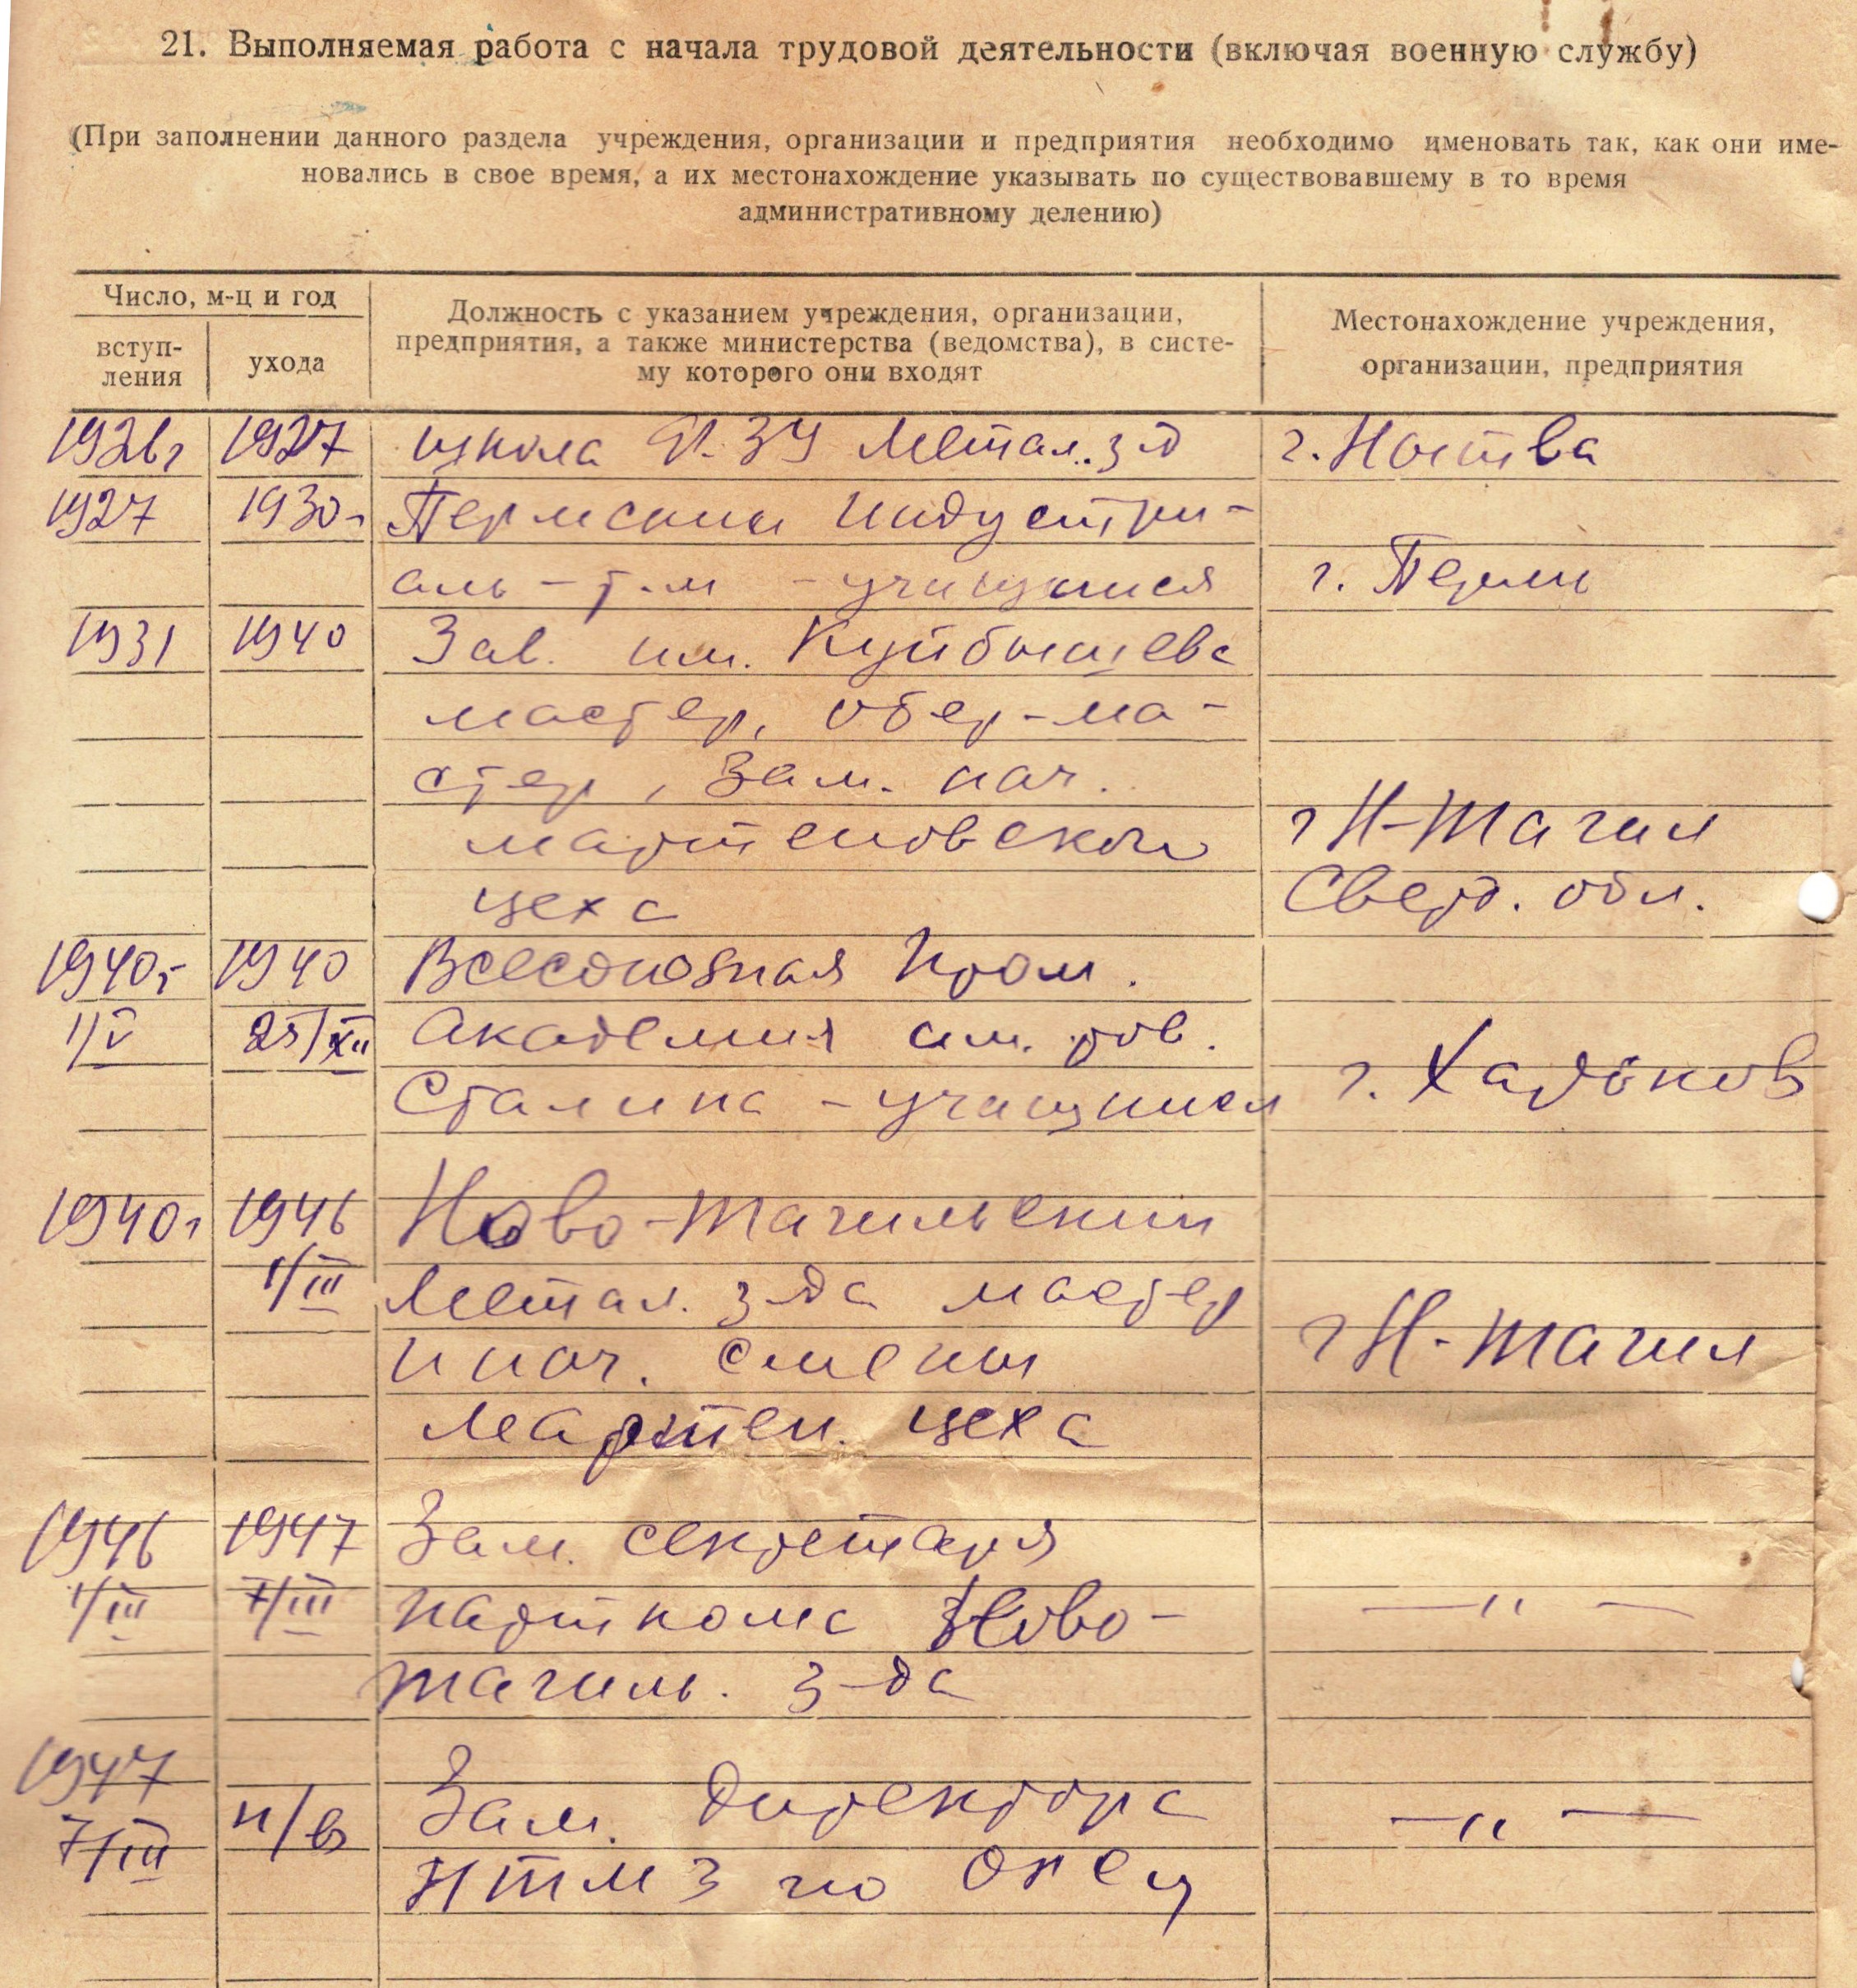 21. Выполняемая работа с начала трудовой деятельности (включая военную службу)
(При заполнении данного раздела учреждения, организации и предприятия необходимо именовать так, как они име-
новались в свое время, а их местонахождение указывать по существовавшему в то время
административному делению)
Число, м-ц и год
вступ-
ления
ухода
Должность с указанием учреждения, организации,
предприятия, а также министерства (ведомства), в систе-
му которого они входят
Местонахождение учреждения,
организации, предприятия
1926г 1927 школа Ф.ЗУ Метал. з-д г. Нытва
1927 1930г Пермский индустри-
аль-т-м - учащийся г. Пермь
1931 1940 Зав. им. Куйбышева
мастер, обер-ма-
стер, Зам. нач.
мартеновского г Н-Тагил
цеха Сверд. обл.
1940г 1940 Всесоюзная Пром.
1/V 25/XII Академия им. тов.
Сталина - учащийся г. Харьков
1940г 1946 Ново-Тагильский
1/III Метал. з-да мастер
и нач. смены г Н-Тагил
Мартен. цеха
1946 1947 Зам. секретаря
1/III 7/III парткома Ново- —"—
Тагиль. з-да
1947 Зам. директора
7/III н/в —"—
НТМЗ по